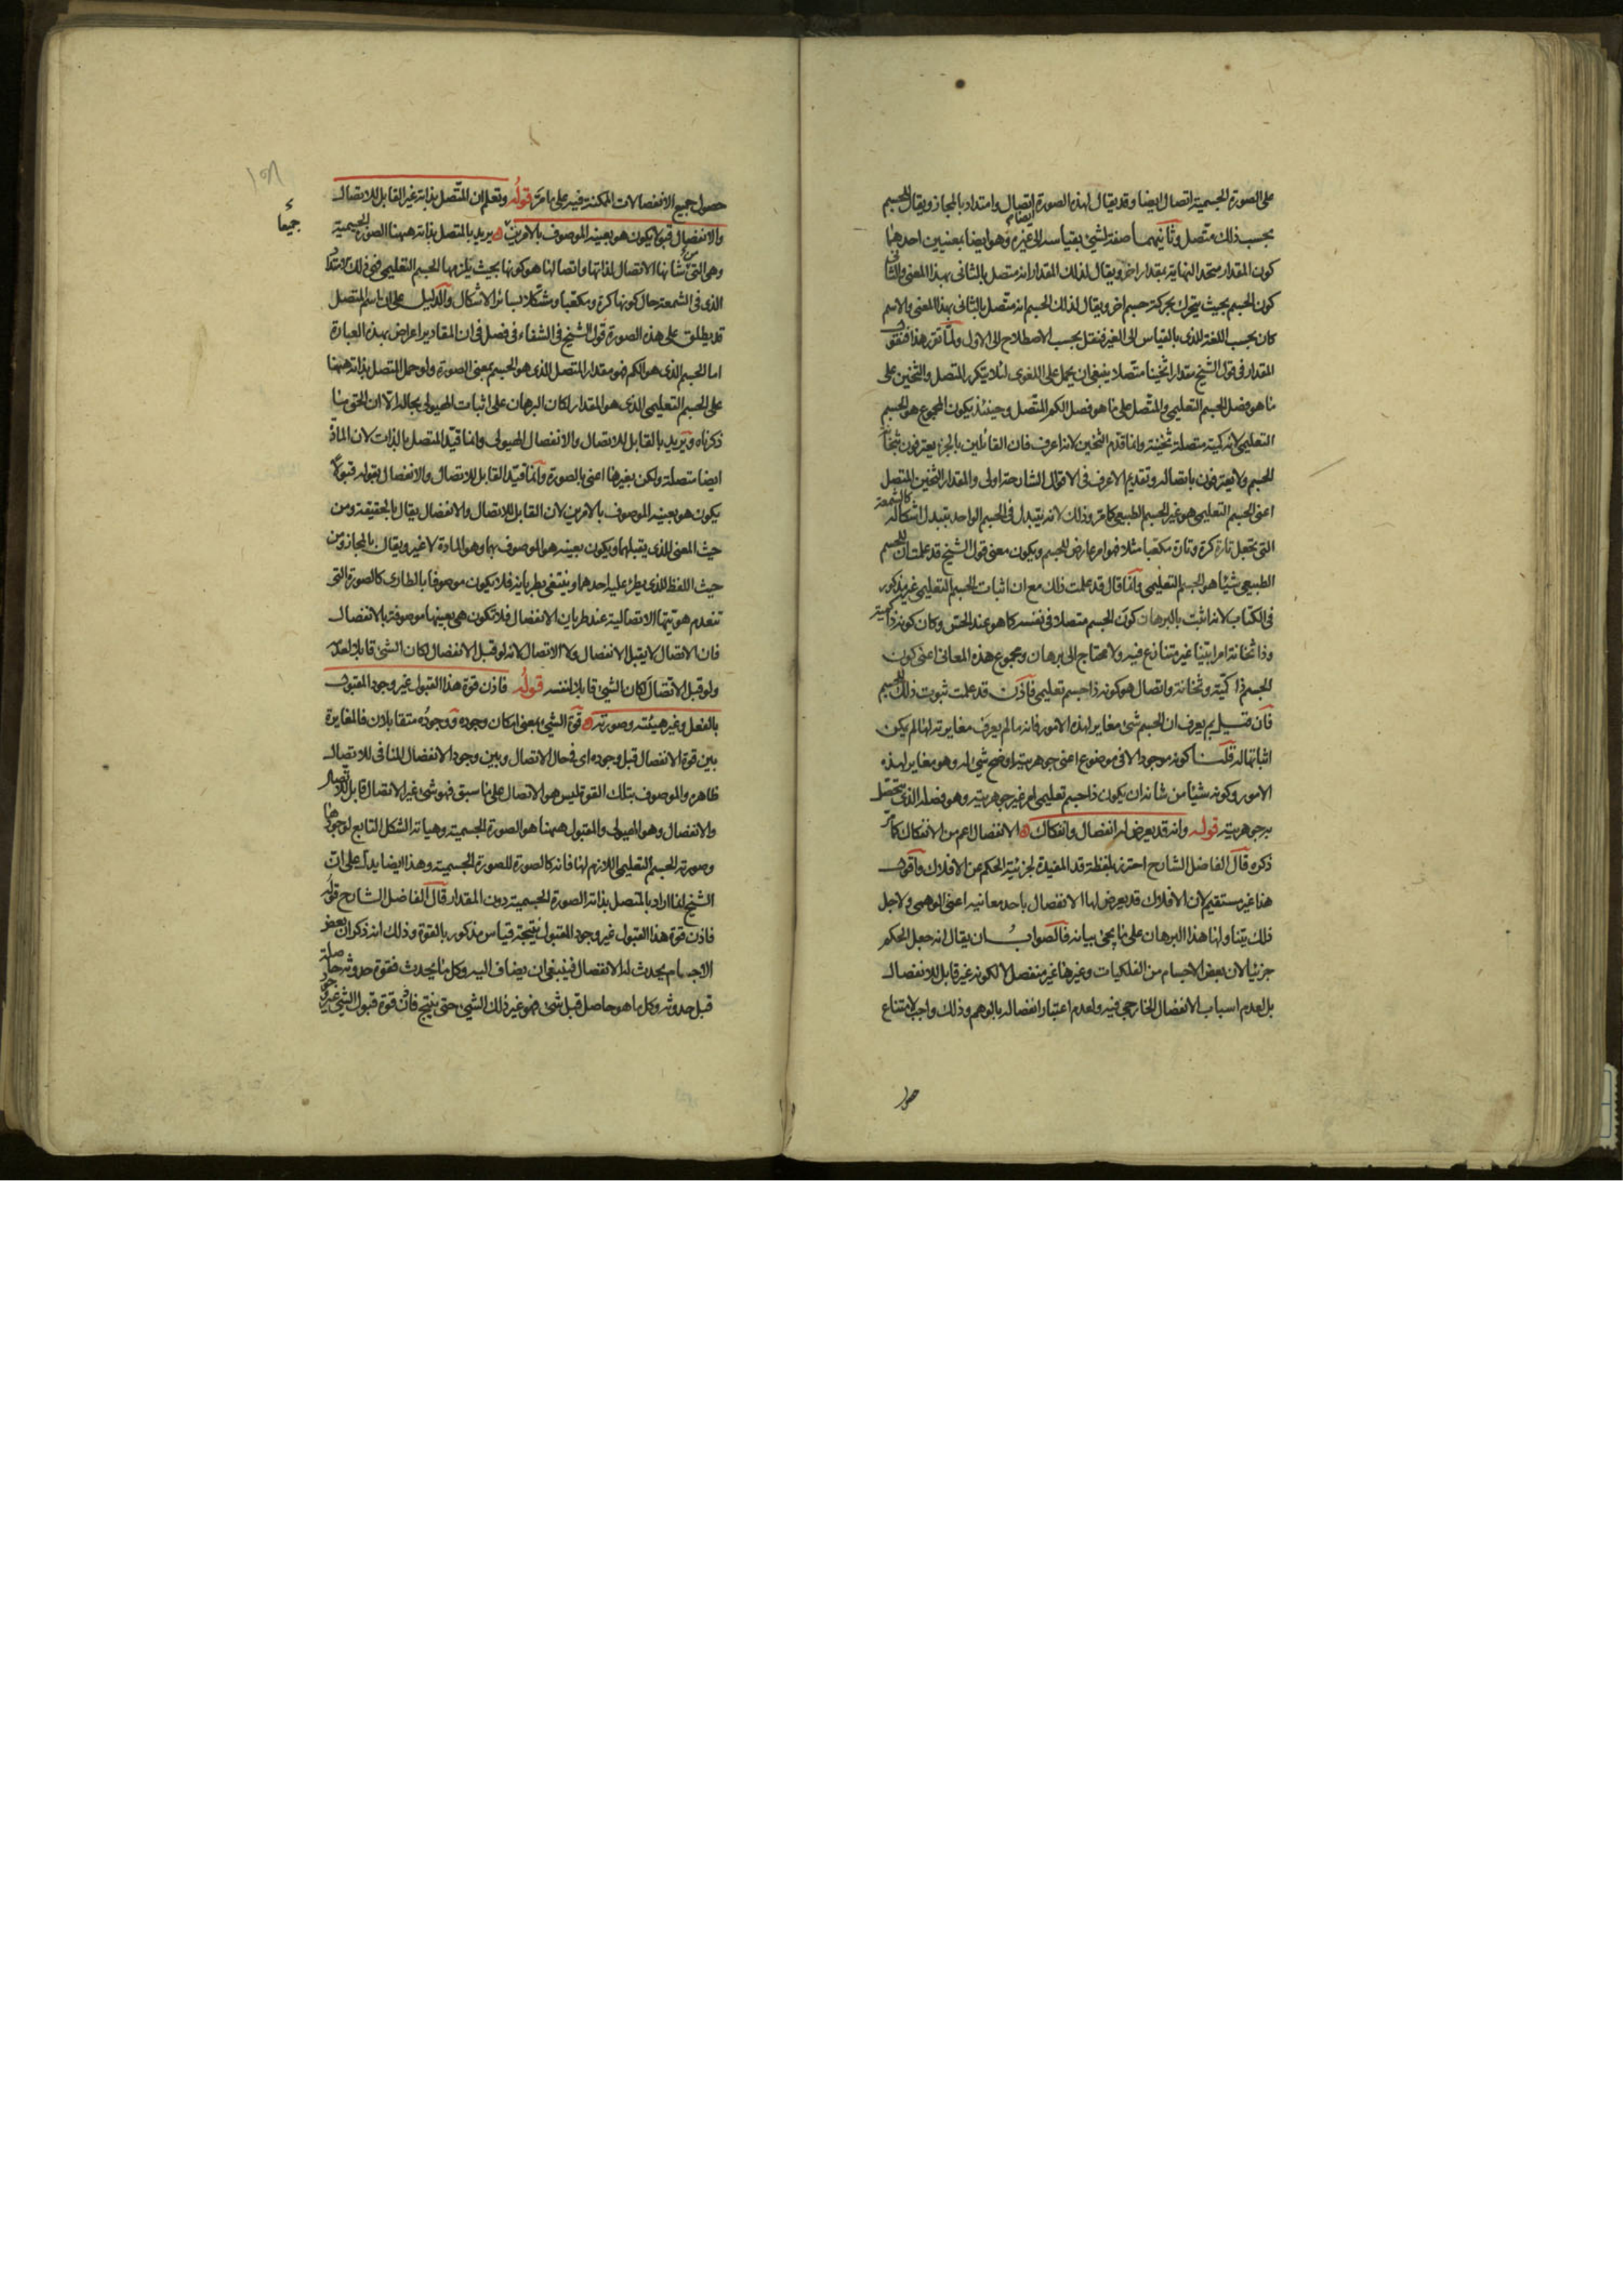 على الصورة الجسمية اتصال ايضا وقد يقال لهذه الصورة اتصال وامتداد بالمجاز ويقال للجسم
بحسب ذلك متصل وثانيهما صفة لشئ بقياسه الى غيره وهو ايضا بمعنيين احدهما
كون المقدار متحد النهاية بمقدار اخر ويقال لذلك المقدار انه متصل بالثانى بهذا المعنى والثانى
كون الجسم بحيث يتحرك بحركة جسم اخر ويقال لذلك الجسم انه متصل بالثانى بهذا المعنى والاسم
كان بحسب اللغة للذى بالقياس الى الغير فنقل بحسب الاصطلاح الى الاول ولما تقرر هذا فنقول
المقدار فى قول الشيخ مقدارا ثخينا متصلا ينبغى ان يحمل على اللغوى لئلا يتكرر المتصل والثخين على
ما هو فصل الجسم التعليمى والمتصل على ما هو فصل الكم المتصل وحينئذ يكون المجموع هو الجسم
التعليمى لانه كمية متصلة ثخينة وانما قدم الثخين لانه اعرف فان القائلين بالجزء يعترفون بثخانة
الجسم ولا يعترفون باتصاله وتقديم الاعرف فى الاقوال الشارحة اولى والمقدار الثخين المتصل
اعنى الجسم التعليمى هو غير الجسم الطبيعى كما مر وذلك لانه يتبدل فى الجسم الواحد بتبدل اشكاله كالشمعة
التى تجعل تارة كرة وتارة مكعبا مثلا فهو امر عارض للجسم ويكون معنى قول الشيخ قد علمت ان للجسم
الطبيعى شيئا هو الجسم التعليمى وانما قال قد علمت ذلك مع ان اثبات الجسم التعليمى غير مذكور
فى الكتاب لانه اثبت بالبرهان كون الجسم متصلا فى نفسه كما هو عند الحس وكان كونه ذا كمية
وذا ثخانة امرا بينا غير متنازع فيه ولا محتاج الى برهان ومجموع هذه المعانى اعنى كون
الجسم ذا كمية وثخانة واتصال هو كونه ذا جسم تعليمى فاذن قد علمت ثبوت ذلك للجسم
فان قيل بم يعرف ان الجسم شئ مغاير لهذه الامور فانه ما لم يعرف مغايرته لها لم يكن
اثباتها له قلنا كونه موجودا لا فى موضوع اعنى جوهريته اوضح شئ له وهو مغاير لهذه
الامور وكونه شيئا من شانه ان يكون ذا جسم تعليمى امر غير جوهريته وهو فصله الذى يتحصل
به جوهريته قوله وانه قد يعرض له انفصال وانفكاك الانفصال اعم من الانفكاك كما مر
ذكره قال الفاضل الشارح احترز بلفظة قد المفيدة لجزئية الحكم عن الافلاك واقول
هذا غير مستقيم لان الافلاك قد يعرض لها الانفصال باحد معانيه اعنى الوهمى ولاجل
ذلك يتناولها هذا البرهان على ما يجئ بيانه فالصواب ان يقال انه جعل الحكم
جزئيا لان بعض الاجسام من الفلكيات وغيرها غير منفصل لا لكونه غير قابل للانفصال
بل لعدم اسباب الانفصال الخارجى فيه ولعدم اعتبار انفصاله بالوهم وذلك واجب لامتناع
حصول جميع الانفصالات الممكنة فيه على ما مر قوله وتعلم ان المتصل بذاته غير القابل للاتصال
والانفصال قبولا يكون هو بعينه الموصوف بالامرين يريد بالمتصل بذاته ههنا الصورة الجسمية
جميعا
وهى التى من شانها الاتصال لذاتها واتصالها هو كونها بحيث يلزمها الجسم التعليمى فهى ذلك الامتداد
الذى فى الشمعة حال كونها كرة ومكعبا ومشكلا بسائر الاشكال والدليل على ان اسم المتصل
قد يطلق على هذه الصورة قول الشيخ فى الشفاء فى فصل فى ان المقادير اعراض بهذه العبارة
اما الجسم الذى هو الكم فهو مقدار المتصل الذى هو الجسم بمعنى الصورة ولو حمل المتصل بذاته ههنا
على الجسم التعليمى الذى هو المقدار لكان البرهان على اثبات الهيولى بحاله الا ان الحق ما
ذكرناه ويريد بالقابل للاتصال والانفصال الهيولى وانما قيد المتصل بالذات لان المادة
ايضا متصلة ولكن بغيرها اعنى بالصورة وانما قيد القابل للاتصال والانفصال بقوله قبولا
يكون هو بعينه الموصوف بالامرين لان القابل للاتصال والانفصال يقال بالحقيقة ومن
حيث المعنى للذى يقبلهما ويكون بعينه هو الموصوف بهما وهو المادة لا غير ويقال بالمجاز ومن
حيث اللفظ للذى يطرء عليه احدهما وينتفى بطريانه فلا يكون موصوفا بالطارى كالصورة التى
تنعدم هويتها الاتصالية عند طريان الانفصال فلا تكون هى بعينها موصوفة بالانفصال
فان الاتصال لا يقبل الانفصال ولا الاتصال لانه لو قبل الانفصال لكان الشئ قابلا لعدمه
ولو قبل الاتصال لكان الشئ قابلا لنفسه قوله فاذن قوة هذا القبول غير وجود المقبول
بالفعل وغير هيئته وصورته قوة الشئ بمعنى امكان وجوده ووجوده متقابلان فالمغايرة
بين قوة الانفصال قبل وجوده اى فى حال الاتصال وبين وجود الانفصال المنافى للاتصال
ظاهرة والموصوف بتلك القوة ليس هو الاتصال على ما سبق فهو شئ غير الاتصال قابل للاتصال
والانفصال وهو الهيولى والمقبول ههنا هو الصورة الجسمية وهياته الشكل التابع لوجودها
وصورته الجسم التعليمى اللازم لها فانه كالصورة للصورة الجسمية وهذا ايضا يدل على ان
الشيخ انما اراد بالمتصل بذاته الصورة الجسمية دون المقدار قال الفاضل الشارح قوله
فاذن قوة هذا القبول غير وجود المقبول نتيجة قياس مذكور بالقوة وذلك انه ذكر ان بعض
الاجسام يحدث له الانفصال فينبغى ان يضاف اليه وكل ما يحدث فقوة حدوثه حاصلة
قبل حدوثه وكل ما هو حاصل قبل شئ فهو غير ذلك الشئ حتى ينتج فاذن قوة قبول الشئ غير وجوده